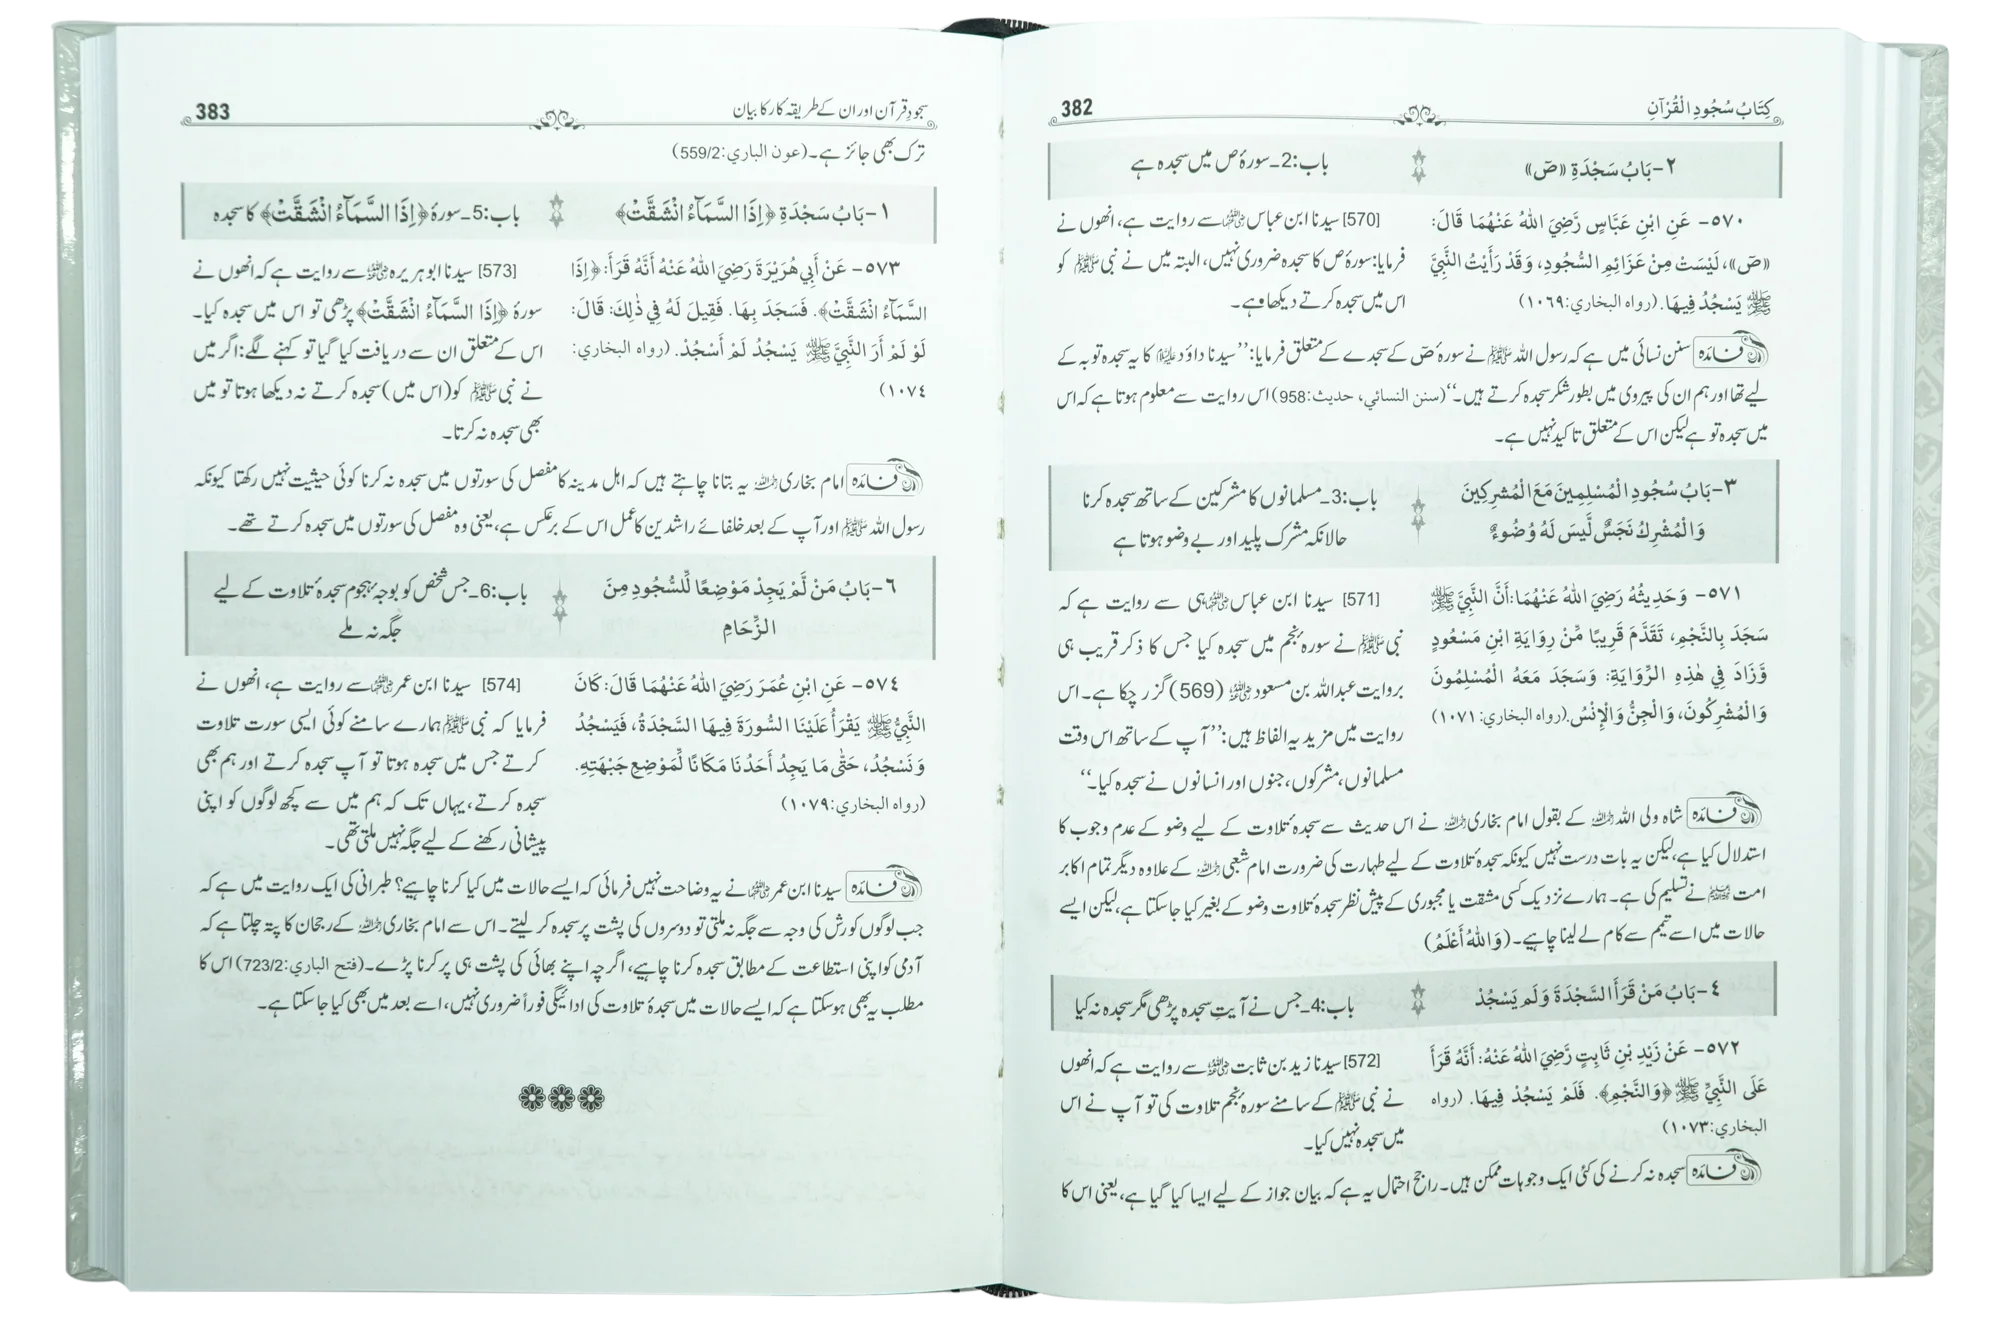 كِتَابُ سُجُودِ الْقُرْآنِ 382
٢- بَابُ سَجْدَةِ «صٓ»
باب:2۔سورۂ ص میں سجدہ ہے
٥٧٠- عَنِ ابْنِ عَبَّاسٍ رَّضِيَ اللهُ عَنْهُمَا قَالَ:
«صٓ»، لَيْسَتْ مِنْ عَزَائِمِ السُّجُودِ، وَقَدْ رَأَيْتُ النَّبِيَّ
ﷺ يَسْجُدُ فِيهَا. (رواه البخاري:١٠٦٩)
[570] سیدنا ابن عباس رضی اللہ عنہما سے روایت ہے، انھوں نے
فرمایا: سورۂ ص کا سجدہ ضروری نہیں، البتہ میں نے نبی ﷺ کو
اس میں سجدہ کرتے دیکھا ہے۔
فائدہ سنن نسائی میں ہے کہ رسول اللہ ﷺ نے سورۂ صٓ کے سجدے کے متعلق فرمایا: ’’سیدنا داؤد علیہ السلام کا یہ سجدہ توبہ کے
لیے تھا اور ہم ان کی پیروی میں بطور شکر سجدہ کرتے ہیں۔‘‘ (سنن النسائي، حديث:958) اس روایت سے معلوم ہوتا ہے کہ اس
میں سجدہ تو ہے لیکن اس کے متعلق تاکید نہیں ہے۔
٣- بَابُ سُجُودِ الْمُسْلِمِينَ مَعَ الْمُشرِكِينَ
وَالْمُشْرِكُ نَجَسٌ لَّيسَ لَهُ وُضُوءٌ
باب:3۔مسلمانوں کا مشرکین کے ساتھ سجدہ کرنا
حالانکہ مشرک پلید اور بے وضو ہوتا ہے
٥٧١- وَحَدِيثُهُ رَضِيَ اللهُ عَنْهُمَا: أَنَّ النَّبِيَّ ﷺ
سَجَدَ بِالنَّجْمِ، تَقَدَّمَ قَرِيبًا مِّنْ رِوَايَةِ ابْنِ مَسْعُودٍ
وَّزَادَ فِي هٰذِهِ الرِّوَايَةِ: وَسَجَدَ مَعَهُ الْمُسْلِمُونَ
وَالْمُشْرِكُونَ، وَالْجِنُّ وَالْإِنْسُ. (رواه البخاري: ١٠٧١)
[571] سیدنا ابن عباس رضی اللہ عنہما ہی سے روایت ہے کہ
نبی ﷺ نے سورۂ نجم میں سجدہ کیا جس کا ذکر قریب ہی
بروایت عبداللہ بن مسعود رضی اللہ عنہ (569) گزر چکا ہے۔ اس
روایت میں مزید یہ الفاظ ہیں: ’’آپ کے ساتھ اس وقت
مسلمانوں، مشرکوں، جنوں اور انسانوں نے سجدہ کیا۔‘‘
فائدہ شاہ ولی اللہ رحمہ اللہ کے بقول امام بخاری رحمہ اللہ نے اس حدیث سے سجدۂ تلاوت کے لیے وضو کے عدم وجوب کا
استدلال کیا ہے، لیکن یہ بات درست نہیں کیونکہ سجدۂ تلاوت کے لیے طہارت کی ضرورت امام شعبی رحمہ اللہ کے علاوہ دیگر تمام اکابر
امت نے تسلیم کی ہے۔ ہمارے نزدیک کسی مشقت یا مجبوری کے پیش نظر سجدۂ تلاوت وضو کے بغیر کیا جا سکتا ہے، لیکن ایسے
حالات میں اسے تیمم سے کام لے لینا چاہیے۔ (وَاللهُ أَعْلَمُ)
٤- بَابُ مَنْ قَرَأَ السَّجْدَةَ وَلَم يَسْجُدْ
باب:4۔جس نے آیتِ سجدہ پڑھی مگر سجدہ نہ کیا
٥٧٢- عَنْ زَيْدِ بْنِ ثَابِتٍ رَّضِيَ اللهُ عَنْهُ: أَنَّهُ قَرَأَ
عَلَى النَّبِيِّ ﷺ ﴿وَالنَّجْمِ﴾. فَلَمْ يَسْجُدْ فِيهَا. (رواه
البخاري:١٠٧٣)
[572] سیدنا زید بن ثابت رضی اللہ عنہ سے روایت ہے کہ انھوں
نے نبی ﷺ کے سامنے سورۂ نجم تلاوت کی تو آپ نے اس
میں سجدہ نہیں کیا۔
فائدہ سجدہ نہ کرنے کی کئی ایک وجوہات ممکن ہیں۔ راجح احتمال یہ ہے کہ بیان جواز کے لیے ایسا کیا گیا ہے، یعنی اس کا
سجود قرآن اور ان کے طریقہ کار کا بیان 383
ترک بھی جائز ہے۔ (عون الباري:559/2)
١- بَابُ سَجْدَةِ ﴿إِذَا السَّمَآءُ انْشَقَّتْ﴾
باب:5۔سورۂ ﴿إِذَا السَّمَآءُ انْشَقَّتْ﴾ کا سجدہ
٥٧٣- عَنْ أَبِي هُرَيْرَةَ رَضِيَ اللهُ عَنْهُ أَنَّهُ قَرَأَ: ﴿إِذَا
السَّمَآءُ انْشَقَّتْ﴾. فَسَجَدَ بِهَا. فَقِيلَ لَهُ فِي ذٰلِكَ: قَالَ:
لَوْ لَمْ أَرَ النَّبِيَّ ﷺ يَسْجُدُ لَمْ أَسْجُدْ. (رواه البخاري:
١٠٧٤)
[573] سیدنا ابو ہریرہ رضی اللہ عنہ سے روایت ہے کہ انھوں نے
سورۂ ﴿إِذَا السَّمَآءُ انْشَقَّتْ﴾ پڑھی تو اس میں سجدہ کیا۔
اس کے متعلق ان سے دریافت کیا گیا تو کہنے لگے: اگر میں
نے نبی ﷺ کو (اس میں) سجدہ کرتے نہ دیکھا ہوتا تو میں
بھی سجدہ نہ کرتا۔
فائدہ امام بخاری رحمہ اللہ یہ بتانا چاہتے ہیں کہ اهل مدینہ کا مفصل کی سورتوں میں سجدہ نہ کرنا کوئی حیثیت نہیں رکھتا کیونکہ
رسول اللہ ﷺ اور آپ کے بعد خلفائے راشدین کا عمل اس کے برعکس ہے، یعنی وہ مفصل کی سورتوں میں سجدہ کرتے تھے۔
٦- بَابُ مَنْ لَّمْ يَجِدْ مَوْضِعًا لِّلسُّجُودِ مِنَ
الزِّحَامِ
باب:6۔جس شخص کو بوجہ ہجوم سجدۂ تلاوت کے لیے
جگہ نہ ملے
٥٧٤- عَنِ ابْنِ عُمَرَ رَضِيَ اللهُ عَنْهُمَا قَالَ: كَانَ
النَّبِيُّ ﷺ يَقْرَأُ عَلَيْنَا السُّورَةَ فِيهَا السَّجْدَةُ، فَيَسْجُدُ
وَنَسْجُدُ، حَتّٰى مَا يَجِدُ أَحَدُنَا مَكَانًا لِّمَوْضِعِ جَبْهَتِهِ.
(رواه البخاري:١٠٧٩)
[574] سیدنا ابن عمر رضی اللہ عنہما سے روایت ہے، انھوں نے
فرمایا کہ نبی ﷺ ہمارے سامنے کوئی ایسی سورت تلاوت
کرتے جس میں سجدہ ہوتا تو آپ سجدہ کرتے اور ہم بھی
سجدہ کرتے، یہاں تک کہ ہم میں سے کچھ لوگوں کو اپنی
پیشانی رکھنے کے لیے جگہ نہیں ملتی تھی۔
فائدہ سیدنا ابن عمر رضی اللہ عنہما نے یہ وضاحت نہیں فرمائی کہ ایسے حالات میں کیا کرنا چاہیے؟ طبرانی کی ایک روایت میں ہے کہ
جب لوگوں کو رش کی وجہ سے جگہ نہ ملتی تو دوسروں کی پشت پر سجدہ کر لیتے۔ اس سے امام بخاری رحمہ اللہ کے رجحان کا پتہ چلتا ہے کہ
آدمی کو اپنی استطاعت کے مطابق سجدہ کرنا چاہیے، اگرچہ اپنے بھائی کی پشت ہی پر کرنا پڑے۔ (فتح الباري:723/2) اس کا
مطلب یہ بھی ہو سکتا ہے کہ ایسے حالات میں سجدۂ تلاوت کی ادائیگی فوراً ضروری نہیں، اسے بعد میں بھی کیا جا سکتا ہے۔